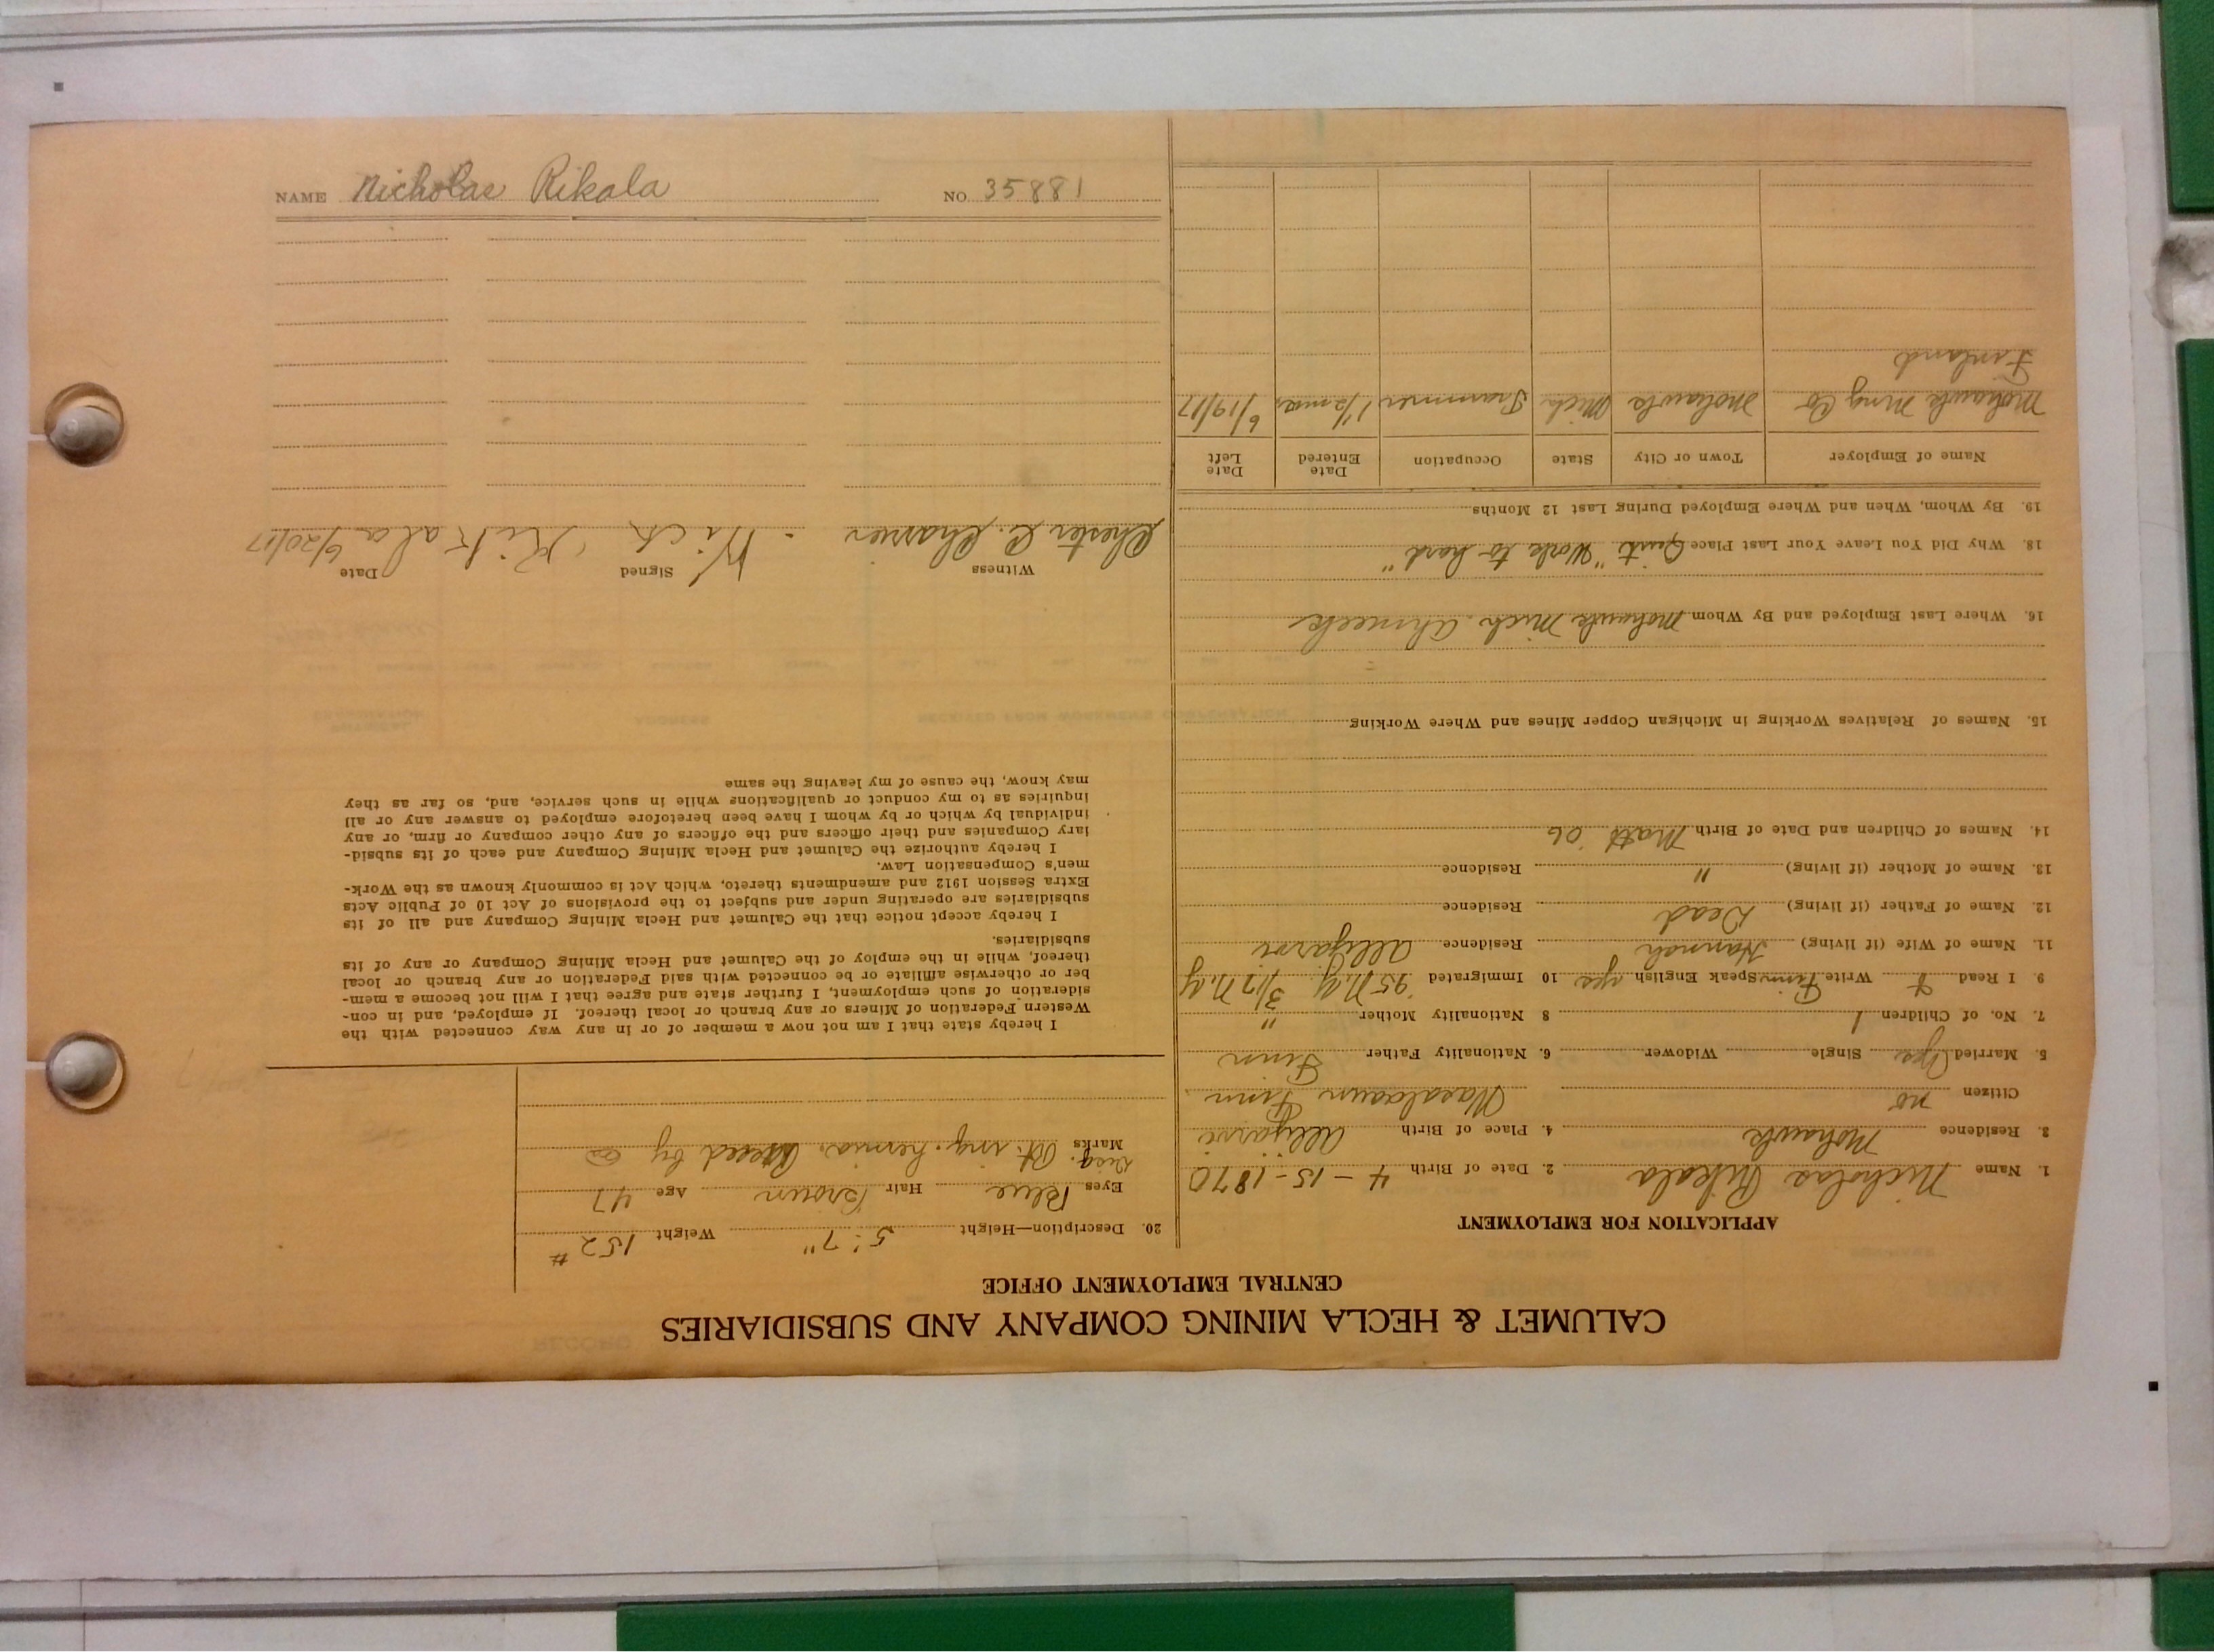 CALUMET & HECLA MINING COMPANY AND SUBSIDIARIES
CENTRAL EMPLOYMENT OFFICE
APPLICATION FOR EMPLOYMENT
1. Name Nicholas Rikala 2. Date of Birth 4-15-1870
3. Residence Mohawk 4. Place of Birth
Citizen no Finn
5. Married Yes Single Widower 6. Nationality Father Finn
7. No. of Children 1 8 Nationality Mother "
9 I Read Write Finn Speak English yes 10 Immigrated '95 N.Y. 3/17 N.Y
11. Name of Wife (if living) Hannah Residence
12. Name of Father (if living) Dead Residence
13. Name of Mother (if living) " Residence
14. Names of Children and Date of Birth Matt 06
15. Names of Relatives Working in Michigan Copper Mines and Where Working
16. Where Last Employed and By Whom Mohawk Mich. Ahmeek
18. Why Did You Leave Your Last Place Quit. "Work to hard"
19. By Whom, When and Where Employed During Last 12 Months
Name of Employer Town or City State Occupation Date Entered Date Left
Mohawk Mng Co Mohawk Mich Trammer 1½ mo. 6/19/17
Finland
20. Description—Height 5' 7" Weight 152#
Eyes Blue Hair Brown Age 47
Marks Rt. ing. hernia. by
I hereby state that I am not now a member of or in any way connected with the
Western Federation of Miners or any branch or local thereof. If employed, and in con-
sideration of such employment, I further state and agree that I will not become a mem-
ber or otherwise affiliate or be connected with said Federation or any branch or local
thereof, while in the employ of the Calumet and Hecla Mining Company or any of its
subsidiaries.
I hereby accept notice that the Calumet and Hecla Mining Company and all of its
subsidiaries are operating under and subject to the provisions of Act 10 of Public Acts
Extra Session 1912 and amendments thereto, which Act is commonly known as the Work-
men's Compensation Law.
I hereby authorize the Calumet and Hecla Mining Company and each of its subsid-
iary Companies and their officers and the officers of any other company or firm, or any
individual by which or by whom I have been heretofore employed to answer any or all
inquiries as to my conduct or qualifications while in such service, and, so far as they
may know, the cause of my leaving the same
Witness Signed Date
Chester C. Nick Rikala 6/20/17
NAME Nicholas Rikala NO. 35881